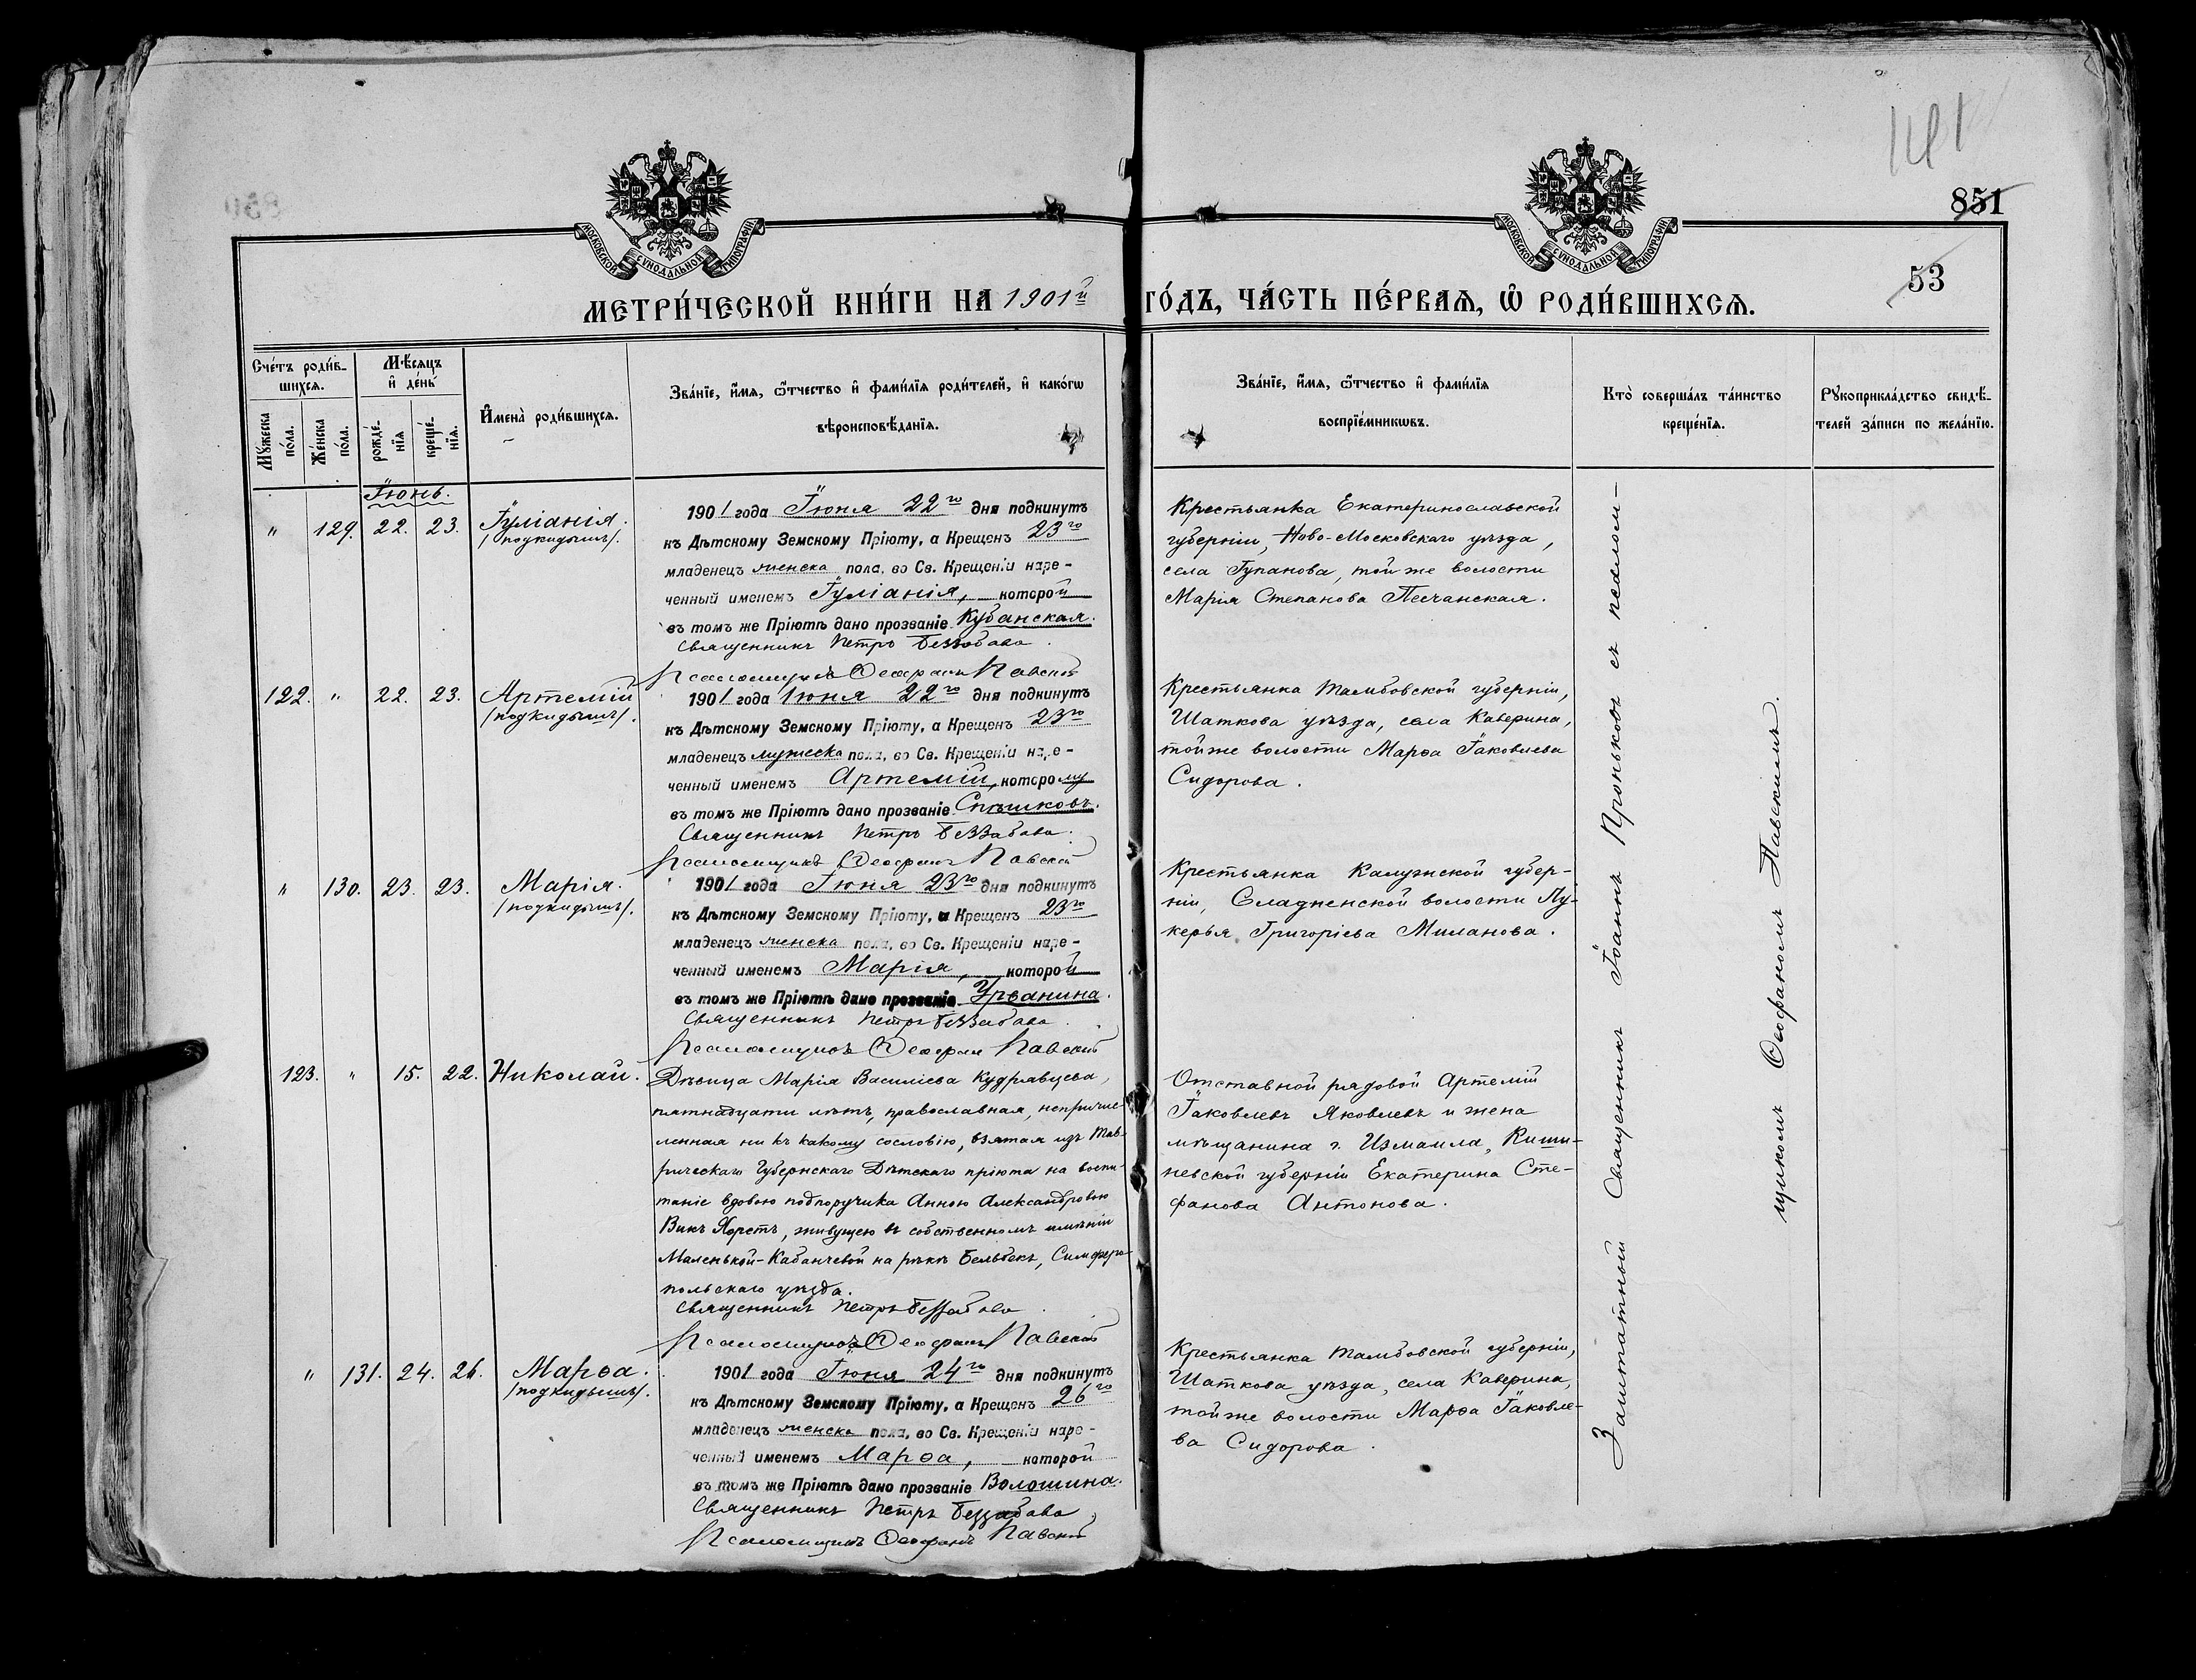 141
851
53
МОСКОВСКОЙ СѴНОДАЛЬНОЙ ТИПОГРАФІИ
МОСКОВСКОЙ СѴНОДАЛЬНОЙ ТИПОГРАФІИ
МЕТРИ́ЧЕСКОЙ КНИ́ГИ НА 1901й ГО́ДЪ, ЧА́СТЬ ПЕ́РВАѦ, Ѡ҆ РОДИ́ВШИХСѦ.
Сче́тъ роди́в-
шихсѧ.
Мꙋ́жеска
по́ла.
Же́нска
по́ла.
Мѣ́сѧцъ
и҆ де́нь
рожде́-
нїѧ
креще́-
нїѧ.
И҆мена̀ роди́вшихсѧ.
Зва́нїе, и҆́мѧ, ѻ҆́тчество и҆ фами́лїѧ роди́телей, и҆ како́гѡ
вѣроисповѣ́данїѧ.
Зва́нїе, и҆́мѧ, ѻ҆́тчество и҆ фами́лїѧ
воспрїе́мникѡвъ.
Кто̀ соверша́лъ та́инство
креще́нїѧ.
Рꙋкоприкла́дство свидѣ́-
телей за́писи по жела́нїю.
Іюнь.
" 129. 22. 23. Іуліанія.
/подкидышъ/.
1901 года Іюня 22го дня подкинутъ
къ Дѣтскому Земскому Пріюту, а Крещенъ 23го
младенецъ женска пола, во Св. Крещеніи наре-
ченный именемъ Іуліанія, которой
въ томъ же Пріютѣ дано прозваніе Кубанская.
Священникъ Петръ Беззабава.
Псаломщикъ Ѳеофанъ Павскій
Крестьянка Екатеринославской
губерніи, Ново-Московскаго уѣзда,
села Гупанова, той же волости
Марія Степанова Песчанская.
122. " 22. 23. Артемій
/подкидышъ/.
1901 года Іюня 22го дня подкинутъ
къ Дѣтскому Земскому Пріюту, а Крещенъ 23го
младенецъ мужеска пола, во Св. Крещеніи наре-
ченный именемъ Артемій, которому
въ томъ же Пріютѣ дано прозваніе Спѣшковъ.
Священникъ Петръ Беззабава.
Псаломщикъ Ѳеофанъ Павскій
Крестьянка Тамбовской губерніи,
Шаткова уѣзда, села Каверина,
тойже волости Марѳа Іаковлева
Сидорова.
" 130. 23. 23. Марія.
/подкидышъ/.
1901 года Іюня 23го дня подкинутъ
къ Дѣтскому Земскому Пріюту, а Крещенъ 23го
младенецъ женска пола, во Св. Крещеніи наре-
ченный именемъ Марія, которой
въ томъ же Пріютѣ дано прозваніе Урванина.
Священникъ Петръ Беззабава.
Псаломщикъ Ѳеофанъ Павскій
Крестьянка Калужской губер-
ніи, Сладненской волости Лу-
керья Григоріева Миланова.
123. " 15. 22. Николай.
Дѣвица Марія Василіева Кудрявцева,
пятнадцати лѣтъ, православная, непричис-
ленная ни къ какому сословію, взятая изъ Тав-
рическаго Губернскаго Дѣтскаго пріюта на воспи-
таніе вдовою подпоручика Анною Александровою
Викъ Хорстъ, живущею въ собственномъ имѣніи
Маленькой-Кабанчевой на рѣкѣ Бельбекъ, Симферо-
польскаго уѣзда.
Священникъ Петръ Беззабава.
Псаломщикъ Ѳеофанъ Павскій
Отставной рядовой Артемій
Іаковлевъ Яковлевъ и жена
мѣщанина г. Измаила, Киши-
невской губерніи Екатерина Сте-
фанова Антонова.
" 131. 24. 26. Марѳа.
/подкидышъ/.
1901 года Іюня 24го дня подкинутъ
къ Дѣтскому Земскому Пріюту, а Крещенъ 26го
младенецъ женска пола, во Св. Крещеніи наре-
ченный именемъ Марѳа, которой
въ томъ же Пріютѣ дано прозваніе Волошина.
Священникъ Петръ Беззабава
Псаломщикъ Ѳеофанъ Павскій
Крестьянка Тамбовской губерніи,
Шаткова уѣзда, села Каверина,
тойже волости Марѳа Іаковле-
ва Сидорова.
Заштатный Священникъ Іоаннъ Проньковъ съ псалом-
щикомъ Ѳеофаномъ Павскимъ.